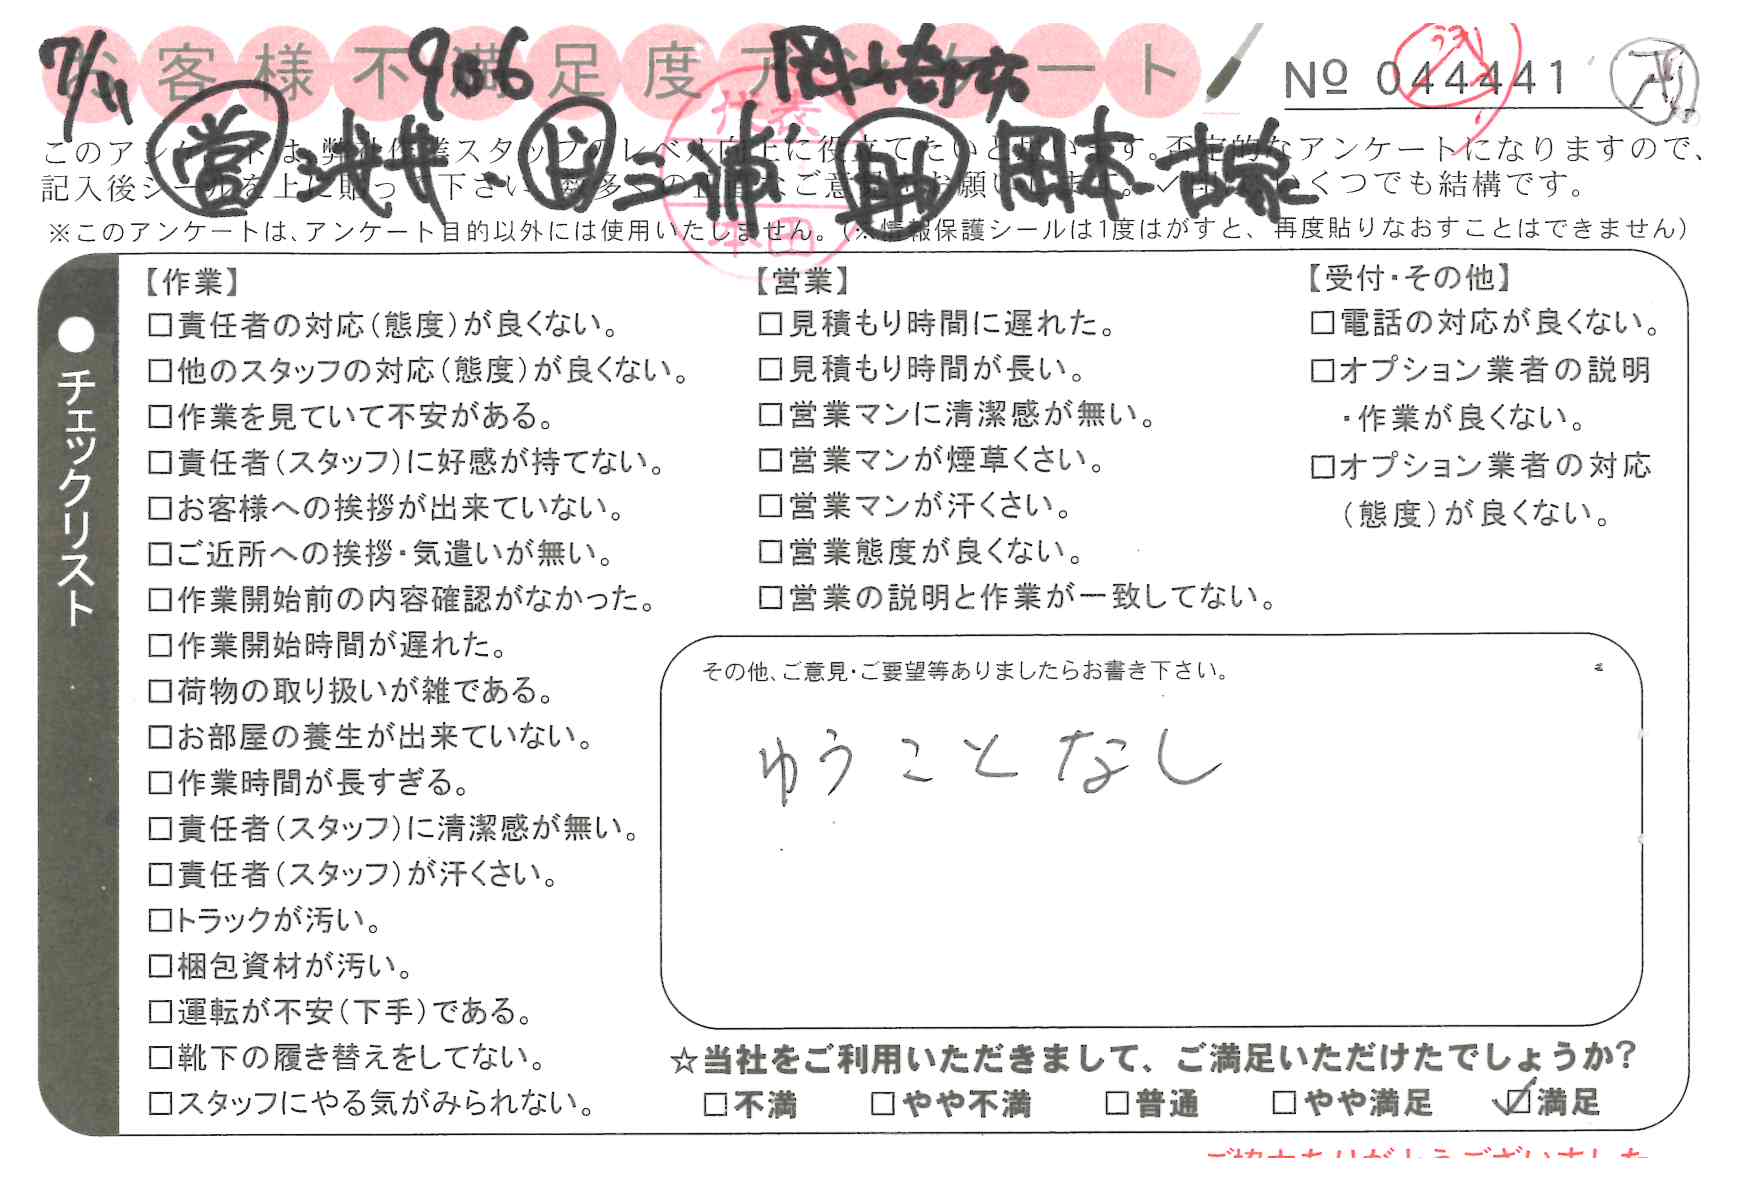 お客様不満足度アンケート
7/11 906 岡崎市
Nº 044441
営 浅井 ・ 責 三浦 助 岡本・古家
このアンケートは、弊社作業スタッフのレベル向上に役立てたいと思います。不定的なアンケートになりますので、
記入後シールを上に貼って下さい。数多くの正直なご意見をお願いします。✓はいくつでも結構です。
※このアンケートは、アンケート目的以外には使用いたしません。(※情報保護シールは1度はがすと、再度貼りなおすことはできません)
代表
本田
●チェックリスト
【作業】
□責任者の対応(態度)が良くない。
□他のスタッフの対応(態度)が良くない。
□作業を見ていて不安がある。
□責任者(スタッフ)に好感が持てない。
□お客様への挨拶が出来ていない。
□ご近所への挨拶・気遣いが無い。
□作業開始前の内容確認がなかった。
□作業開始時間が遅れた。
□荷物の取り扱いが雑である。
□お部屋の養生が出来ていない。
□作業時間が長すぎる。
□責任者(スタッフ)に清潔感が無い。
□責任者(スタッフ)が汗くさい。
□トラックが汚い。
□梱包資材が汚い。
□運転が不安(下手)である。
□靴下の履き替えをしてない。
□スタッフにやる気がみられない。
【営業】
□見積もり時間に遅れた。
□見積もり時間が長い。
□営業マンに清潔感が無い。
□営業マンが煙草くさい。
□営業マンが汗くさい。
□営業態度が良くない。
□営業の説明と作業が一致してない。
【受付・その他】
□電話の対応が良くない。
□オプション業者の説明
・作業が良くない。
□オプション業者の対応
(態度)が良くない。
その他、ご意見・ご要望等ありましたらお書き下さい。
ゆうことなし
☆当社をご利用いただきまして、ご満足いただけたでしょうか?
□不満 □やや不満 □普通 □やや満足 ☑満足
ご協力ありがとうございました